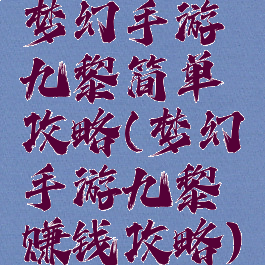 梦幻手游
九黎简单
攻略(梦幻
手游九黎
赚钱攻略)